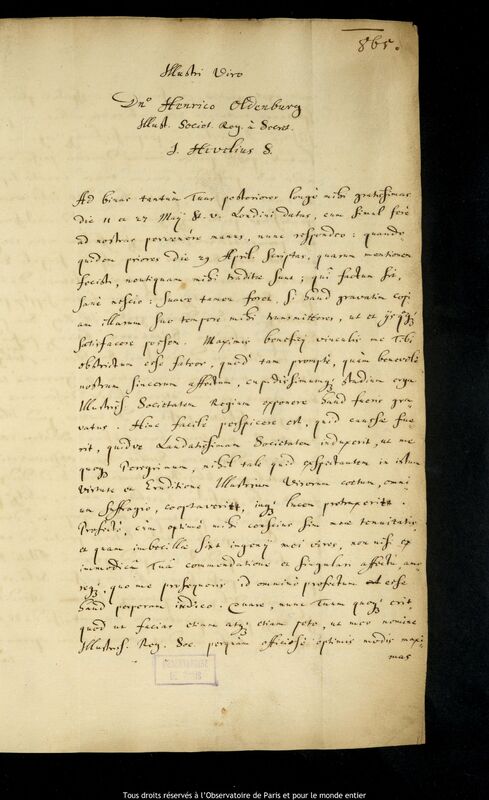 865.
Illustri Viro
Dno Henrico Oldenburg
Illust. Societ. Reg. à Secret.
J. Hevelius S.
Ad binas tantùm Tuas posteriores longè mihi gratissimas
die 11 et 27 Maij st. v. Londini datas, cum simul ferè
ad nostras pervenêre manus, nunc respondeo: quando-
quidem priores die 29 April. scriptas, quarum mentionem
fecisti, neutiquam mihi traditæ sunt; qui factum sit,
sanè nescio: suave tamen foret, si haud gravatim copi
am illarum suo tempore mihi transmitteres, ut et ijs
satisfacere possem. Maximis beneficij vinculis me Tibi
obstrictum esse fateor, quod tam promptè, quàm benevolè
nostrum sincerum affectum, cupidissimumq; studium erga
Illustriss. Societatem Regiam exponere haud fueris gra-
vatus. Hinc facilè perspicere est, quid causæ fue
rit, quidve Laudatissimam Societatem induxerit, ut me
quoq; Peregrinum, nihil tale quid exspectantem in istum
Virtute et Eruditione Illustrium Virorum coetum, omni
um suffragio, cooptaverit, inq; lucem protraxerit.
Profectò, cùm optimè mihi conscius sim meæ tenuitatis,
et quàm imbecillæ sint ingenij mei vires, non nisi ex
immodicâ Tuâ commendatione et singulari affectu, amo
req;, quo me prosequeris id omninò profectum esse
haud perperam indico. Quare, nunc Tuum quoq; erit,
quod ut facias etiam atq; etiam peto, ut meo nomine
Illustriss. Reg. Soc. perquàm officiosè optimis modis maxi-
mas
OBSERVATOIRE
DE PARIS
Tous droits réservés à l'Observatoire de Paris et pour le monde entier